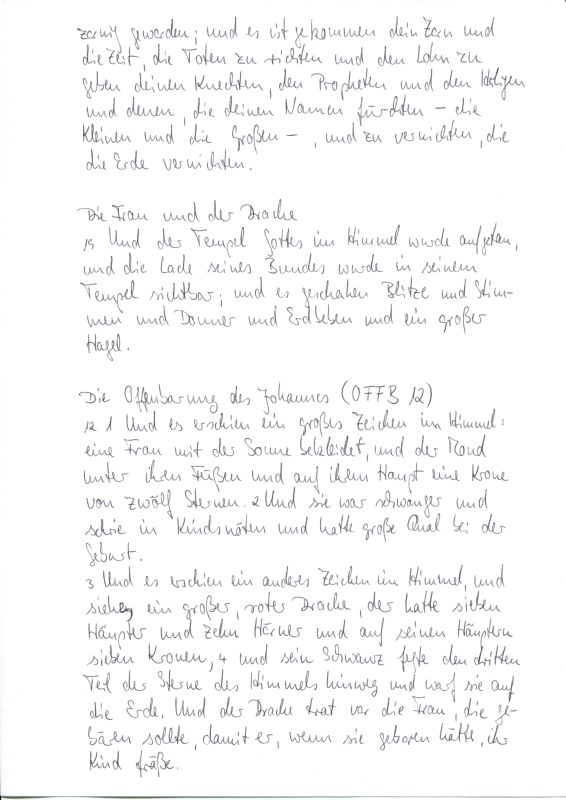 zornig geworden; und es ist gekommen dein Zorn und
die Zeit, die Toten zu richten und den Lohn zu
geben deinen Knechten, den Propheten und den Heiligen
und denen, die deinen Namen fürchten – die
Kleinen und die Großen –, und zu vernichten, die
die Erde vernichten.
Die Frau und der Drache
19 Und der Tempel Gottes im Himmel wurde aufgetan,
und die Lade seines Bundes wurde in seinem
Tempel sichtbar; und es geschahen Blitze und Stim-
men und Donner und Erdbeben und ein großer
Hagel.
Die Offenbarung des Johannes (OFFB 12)
12 1 Und es erschien ein großes Zeichen im Himmel:
eine Frau mit der Sonne bekleidet, und der Mond
unter ihren Füßen und auf ihrem Haupt eine Krone
von zwölf Sternen. 2 Und sie war schwanger und
schrie in Kindsnöten und hatte große Qual bei der
Geburt.
3 Und es erschien ein anderes Zeichen im Himmel, und
siehe, ein großer, roter Drache, der hatte sieben
Häupter und zehn Hörner und auf seinen Häuptern
sieben Kronen, 4 und sein Schwanz fegte den dritten
Teil der Sterne des Himmels hinweg und warf sie auf
die Erde. Und der Drache trat vor die Frau, die ge-
bären sollte, damit er, wenn sie geboren hätte, ihr
Kind fräße.